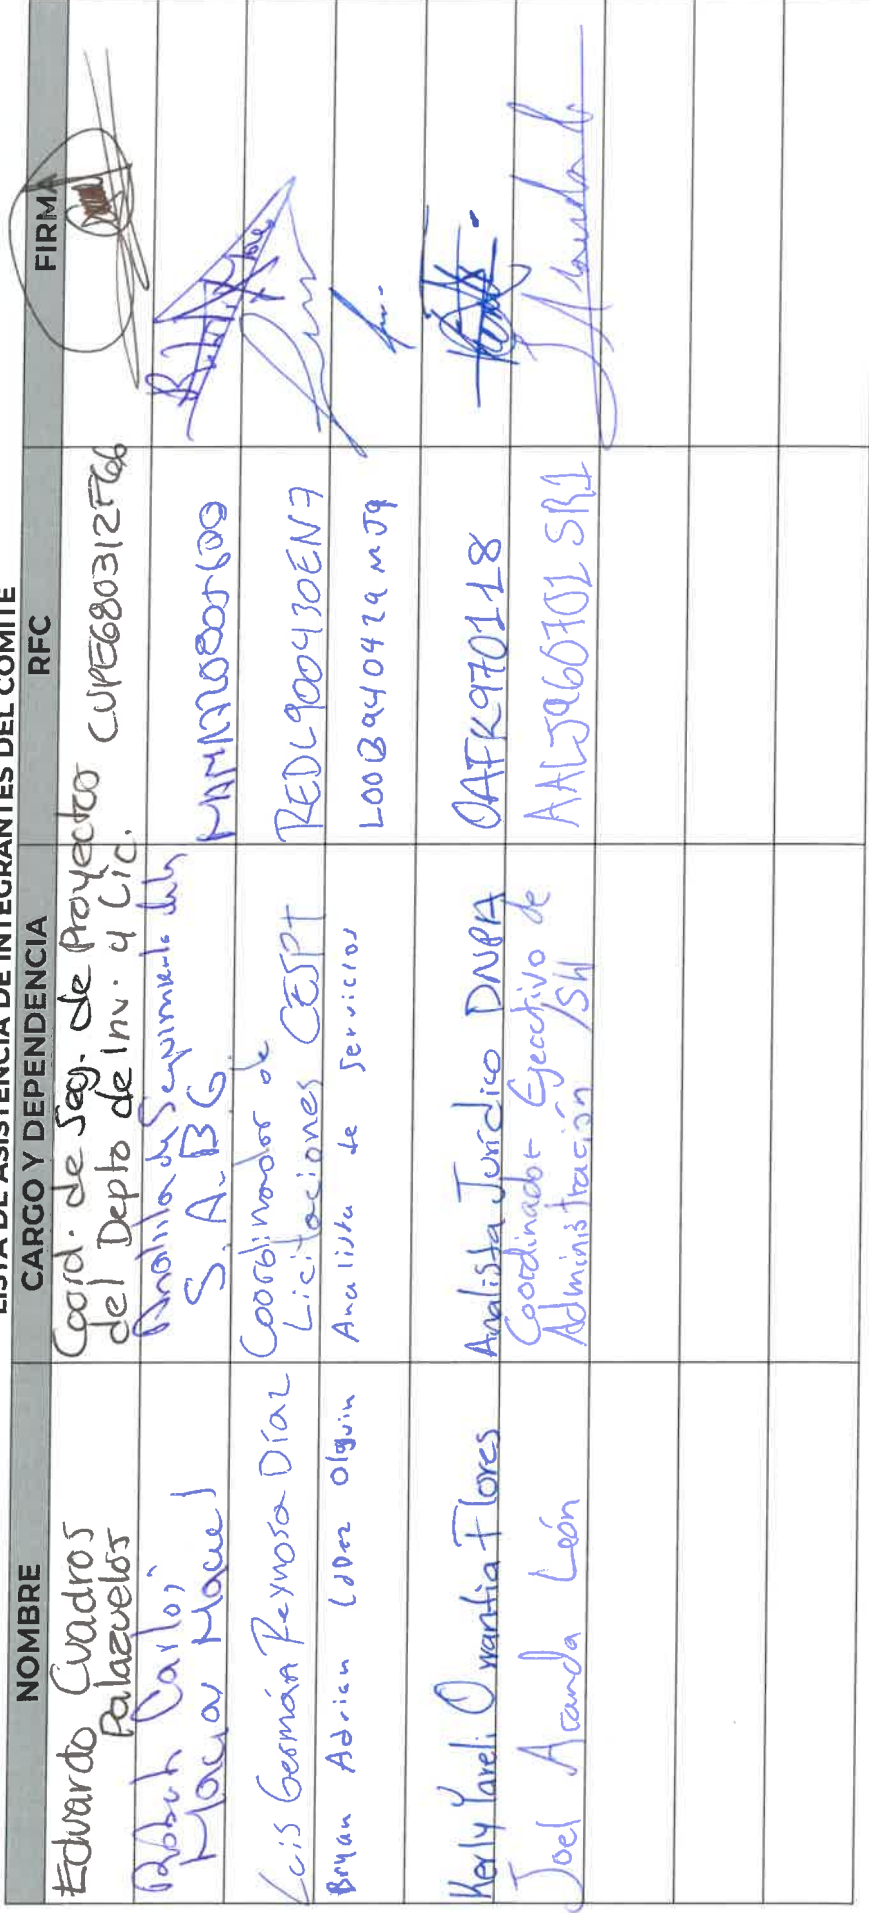 LISTA DE ASISTENCIA DE INTEGRANTES DEL COMITÉ
NOMBRE CARGO Y DEPENDENCIA RFC FIRMA
Eduardo Cuadros Palazuelos
Coord. de Seg. de Proyectos
del Depto de Inv. y Lic.
CUPE680312F66
Carlos
Macias Maciel
Analista de Seguimiento
S.A.BG.
Luis Germán Reynosa Díaz
Coordinador de
Licitaciones CESPT
REDL900430EN7
Bryan Adrian López Olguin
Analista de Servicios
LOOB940429MJ9
Kerly Yareli Orrantia Flores
Analista Jurídico DNPA
OAFK970118
Joel Aranda León
Coordinador Ejecutivo de
Administración /SH
AALJ960701SR1